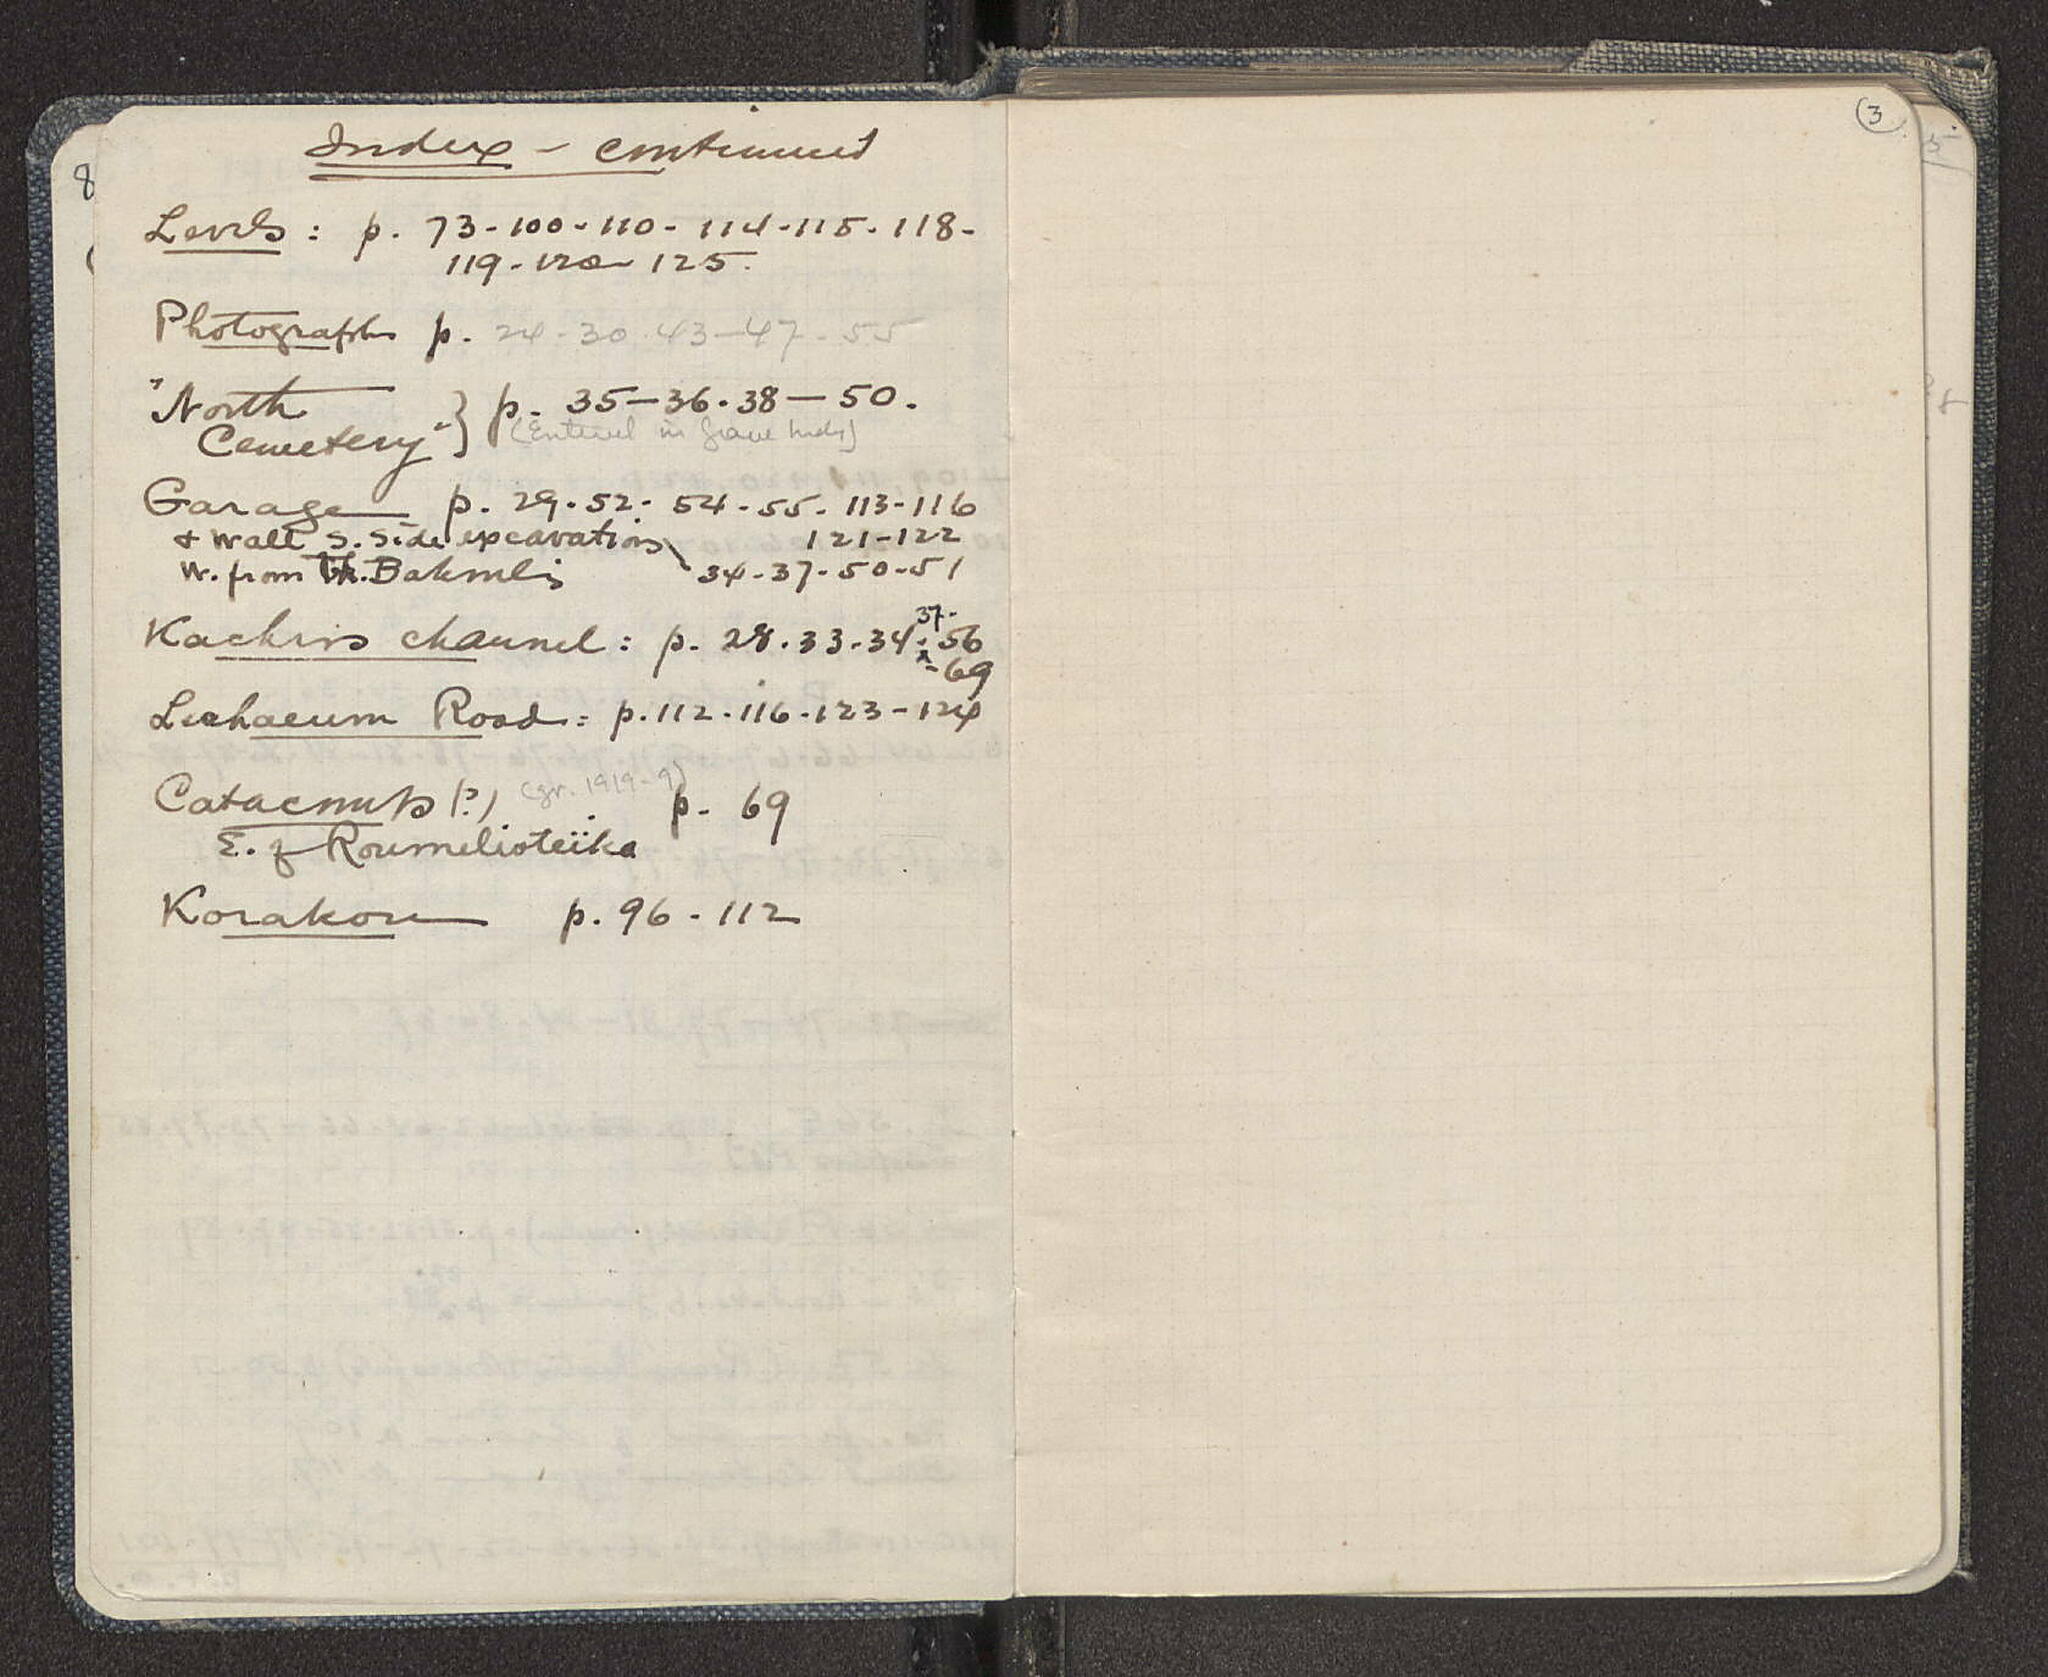 Index - continued
Levels : p. 73-100-110-114-115-118-
119-120-125.
Photographs p. 24-30.43-47-55
"North
Cemetery" } p. 35-36.38-50.
(Entered in Grave Index)
Garage p. 29.52. 54-55. 113-116
+ Wall S. Side excavations 121-122
W. from Bakoulis 34-37-50-51
Kachros channel : p. 28.33.34. 37- 56
-69
Lechaeum Road : p. 112.116.123-124
Catacombs (?) (gr. 1919-9) p. 69
E. of Roumelioteïka
Korakou p. 96-112
8
3
5